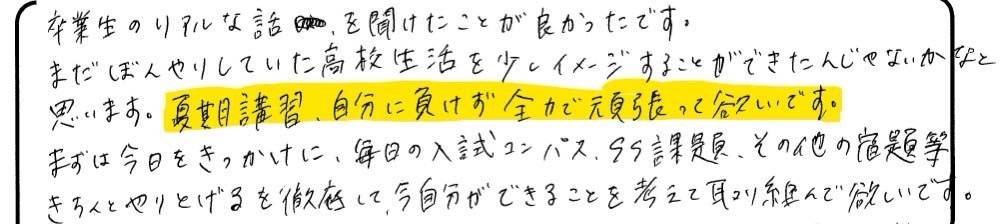 卒業生のリアルな話を聞けたことが良かったです。
まだぼんやりしていた高校生活を少しイメージすることができたんじゃないかなと
思います。夏期講習、自分に負けず全力で頑張って欲しいです。
まずは今日をきっかけに、毎日の入試コンパス、SS課題、その他の宿題等
きちんとやりとげるを徹底して、今自分ができることを考えて取り組んで欲しいです。